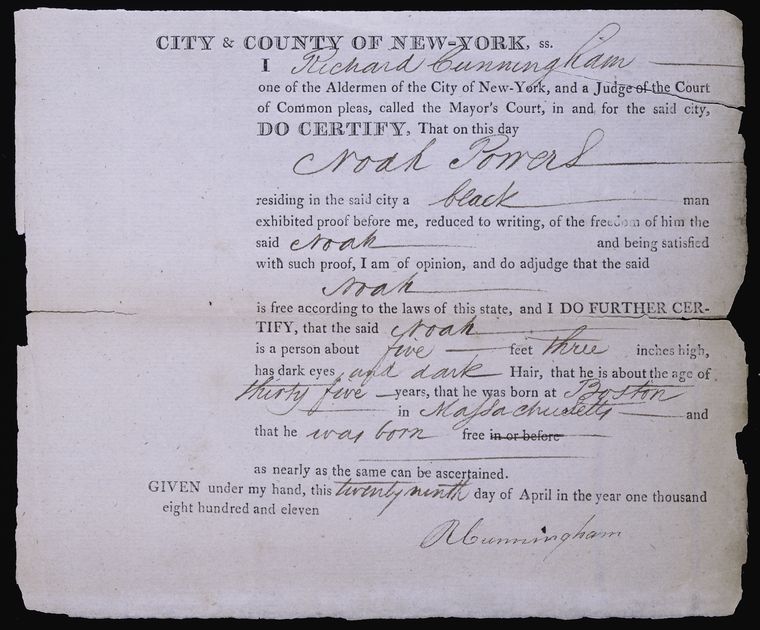 CITY & COUNTY OF NEW-YORK, ss.
I Richard Cunningham
one of the Aldermen of the City of New-York, and a Judge of the Court
of Common pleas, called the Mayor's Court, in and for the said city,
DO CERTIFY, That on this day
Noah Powers
residing in the said city a black man
exhibited proof before me, reduced to writing, of the freedom of him the
said Noah and being satisfied
with such proof, I am of opinion, and do adjudge that the said
Noah
is free according to the laws of this state, and I DO FURTHER CER-
TIFY, that the said Noah
is a person about five feet three inches high,
has dark eyes and dark Hair, that he is about the age of
thirty five years, that he was born at Boston
in Massachusetts and
that he was born free in or before
as nearly as the same can be ascertained.
GIVEN under my hand, this twenty ninth day of April in the year one thousand
eight hundred and eleven
RCunningham